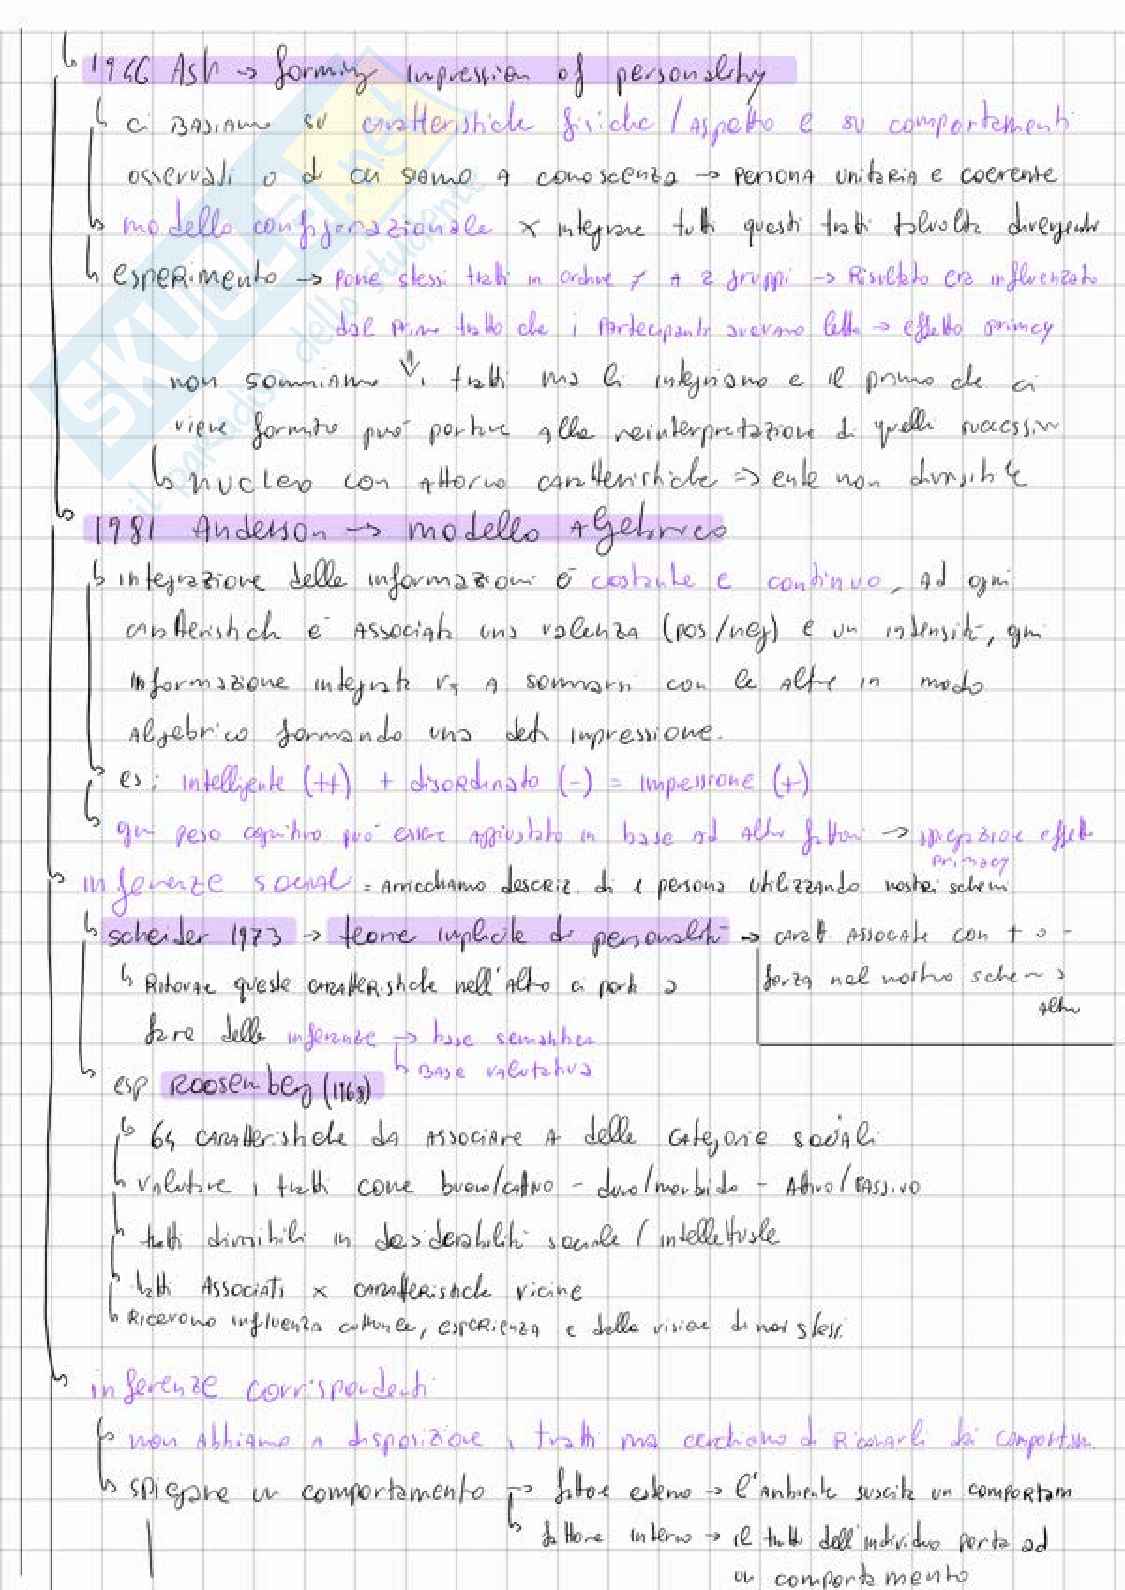 ↳ 1946 Ash → forming impression of personality
↳ ci BASIAmo su caratteristiche fisiche / ASPetto e su comportamenti
osservati o di cui siamo A conoscenza → PERSONA unitaria e coerente
↳ modello configurazionale x integrare tutti questi tratti talvolta divergenti
↳ esperimento → pone stessi tratti in ordine ≠ A 2 gruppi → Risultato era influenzato
dal primo tratto che i partecipanti avevano letto → effetto primacy
non sommiamo ↓ i tratti ma li integriamo e il primo che ci
viene fornito può portare alla reinterpretazione di quelli successivi
↳ nucleo con attorno caratteristiche => ente non divisibile
↳ 1981 Anderson → modello Algebrico
↳ integrazione delle informazioni è costante e continuo, ad ogni
caratteristica è ASSOCIATA una valenza (pos/neg) e un intensità, ogni
informazione integrata va A sommarsi con le altre in modo
Algebrico formando una data impressione.
↳ es: intelligente (++) + disordinato (-) = impressione (+)
↳ ogni peso cognitivo può essere aggiustato in base ad altri fattori → spiegazione effetto
primacy
↳ inferenze sociali = arricchiamo descriz. di 1 persona utilizzando nostri schemi
↳ scheider 1973 → teorie implicite di personalità → caratt ASSOCIATE con + o -
forza nel nostro schema
↳ Ritrovare queste caratteristiche nell'altro ci porta a
altro
fare delle inferenze → base semantica
↳ BASE valutativa
↳ esp Roosemberg (1968)
↳ 64 caratteristiche da ASSOCIARE A delle categorie sociali
↳ valutare i tratti come buono/cattivo - duro/morbido - Attivo/PASSIVO
↳ tratti divisibili in desiderabilità sociale / intellettuale
↳ tratti ASSOCIATI x caratteristiche vicine
↳ Ricevono influenza culturale, esperienza e della visione di noi stessi.
↳ inferenze corrispondenti
↳ non abbiamo a disposizione i tratti ma cerchiamo di Ricavarli dai comportam.
↳ spiegare un comportamento → fattore esterno → l'ambiente suscita un comportam
↳ fattore interno → il tratto dell'individuo porta ad
un comportamento
SKUOLA.net
il paradiso dello studente